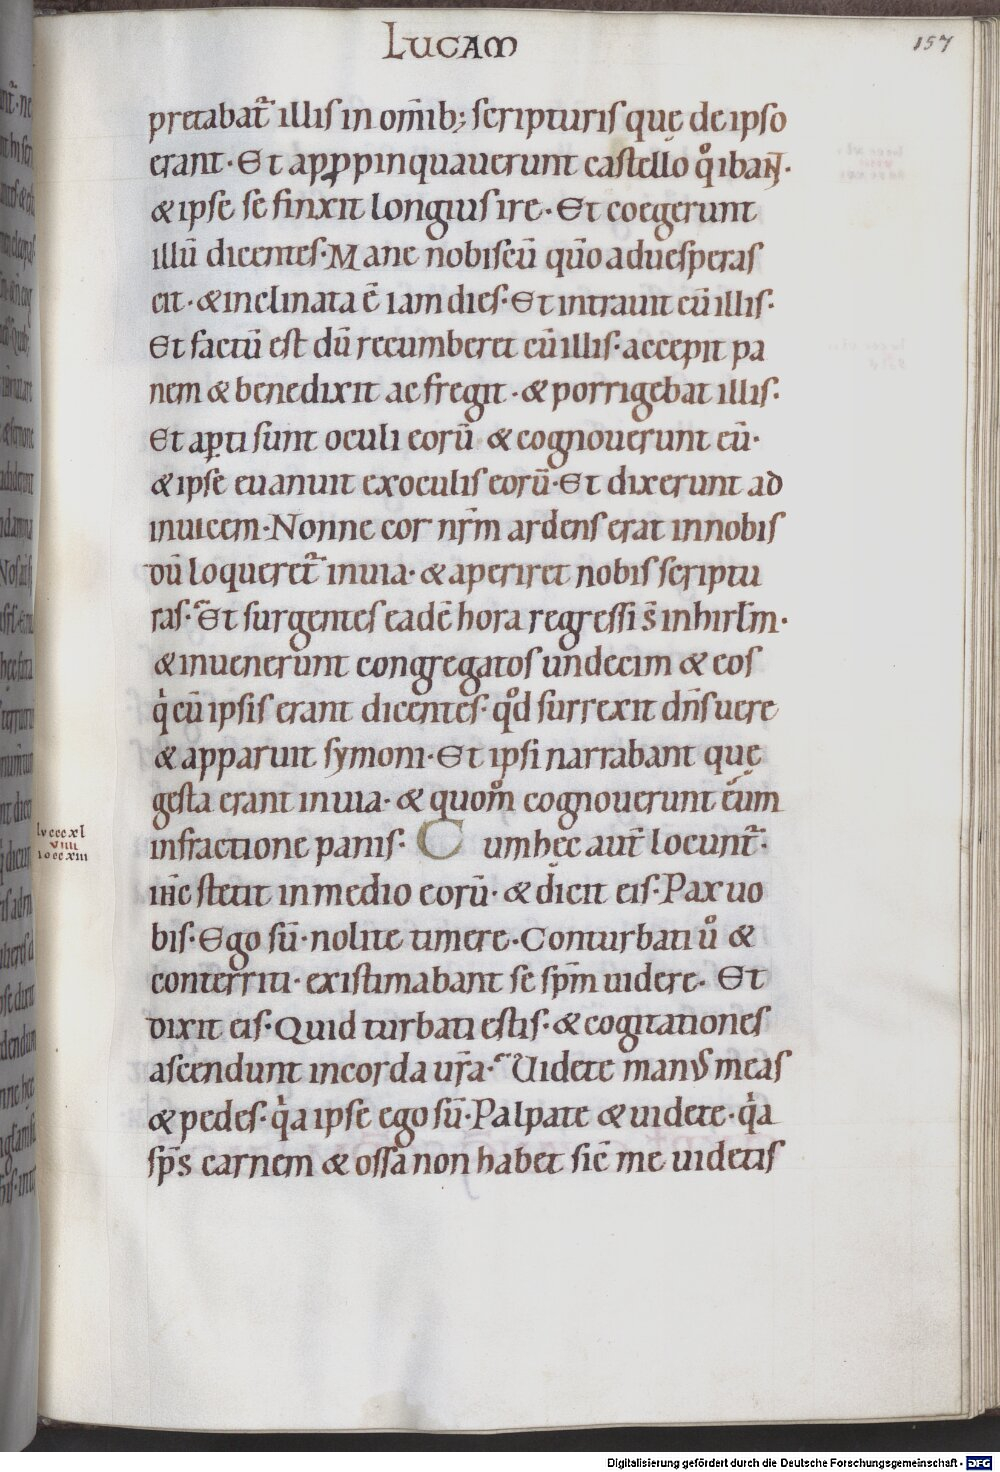 LUCAM
157
pretabat᷑ illis in om̅ib; scripturis que̜ de ipso
erant. Et apꝓpinquauerunt castello q̊ iban̄t.
& ipse se finxit longius ire. Et coegerunt
illū dicentes. Mane nobiscū qūo aduesperas
cit. & inclinata ē iam dies. Et intrauit cū illis.
Et factū est dū recumberet cū illis. accepit pa
nem & benedixit ac fregit. & porrigebat illis.
Et apꝑti sunt oculi eorū & cognouerunt eū.
& ipse euanuit ex oculis eorū. Et dixerunt ad
inuicem. Nonne cor nr̄m ardens erat in nobis
dū loqueret᷑ in uia. & aperiret nobis scriptu
ras. Et surgentes eadē hora regressi s̄ in hirl̄m.
& inuenerunt congregatos undecim & eos
qͥ cū ipsis erant dicentes. qͦd surrexit dn̄s uere
& apparuit symoni. Et ipsi narrabant que̜
gesta erant in uia. & quom̊ cognouerunt eum
in fractione panis. Cum he̜c aut̄ locunt᷑.
ih̄c stetit in medio eorū. & dicit eis. Pax uo
bis. Ego sū. nolite timere. Conturbati uͦ &
conterriti. existimabant se sp̄m uidere. Et
dixit eis. Quid turbati estis. & cogitationes
ascendunt in corda ur̄a. Uidete manus meas
& pedes. qͥa ipse ego sū. Palpate & uidete. qͥa
sp̄s carnem & ossa non habet sic̄ me uidetis
lu cccxl
viiii
io ccxiii
Digitalisierung gefördert durch die Deutsche Forschungsgemeinschaft - DFG